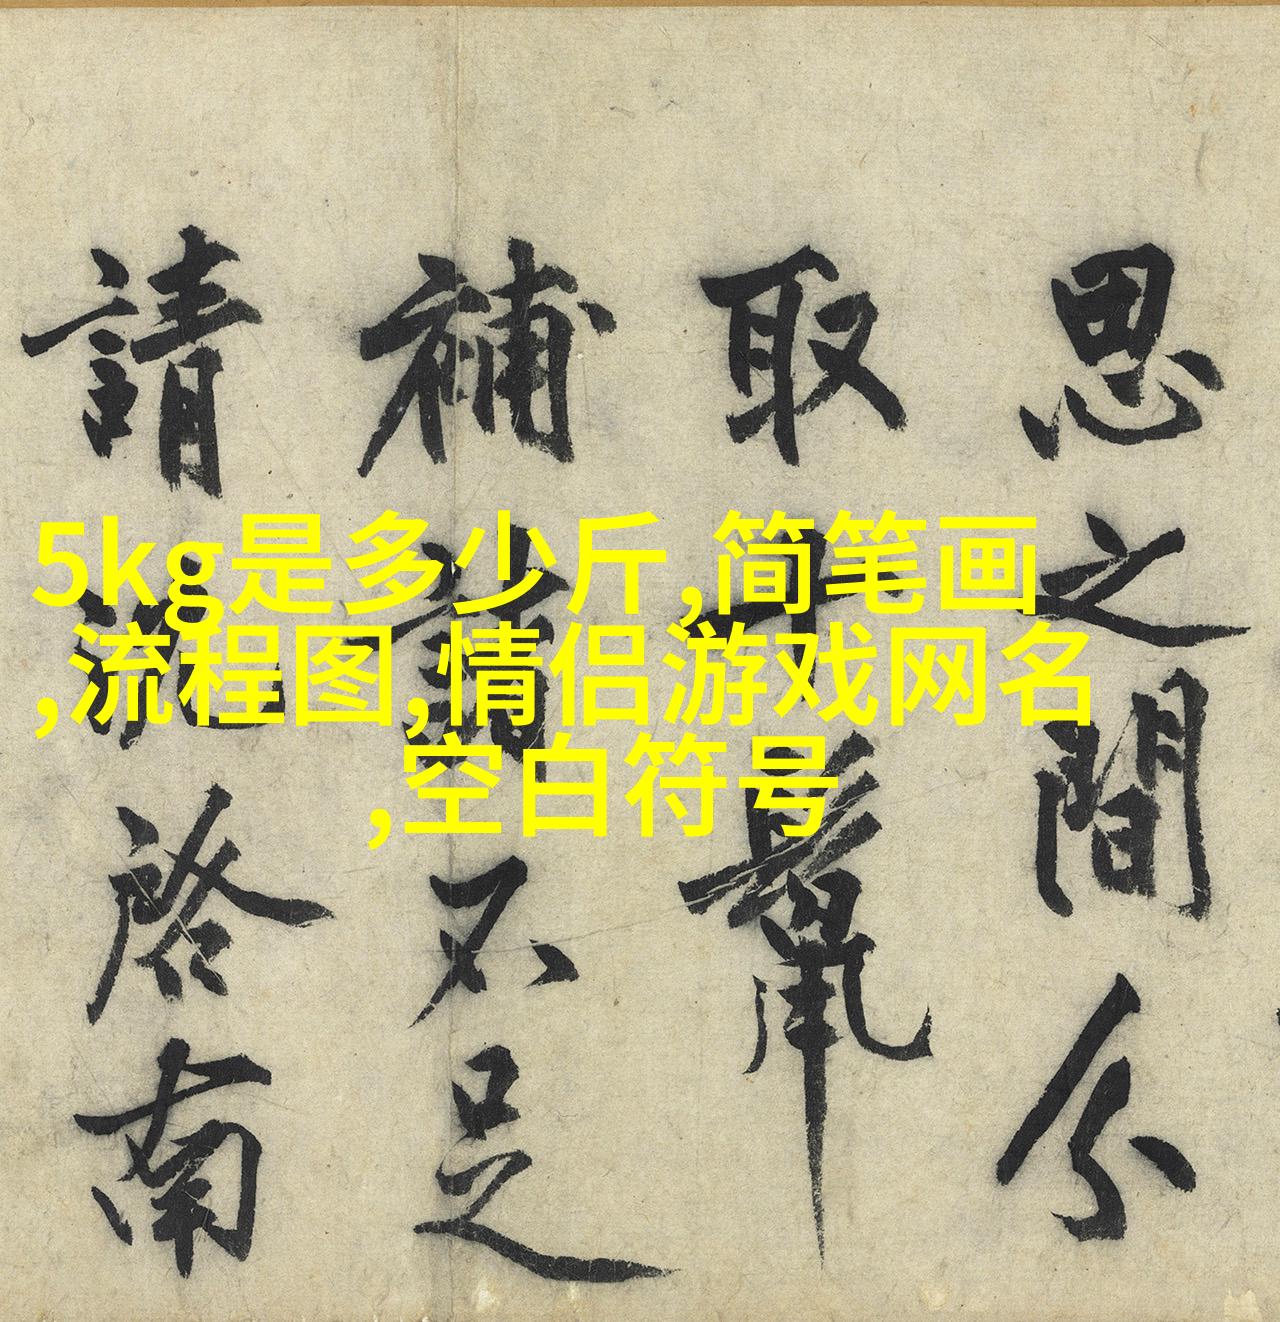 5kg是多少斤,简笔画
,流程图,情侣游戏网名
,空白符号
思之間分
取十鬣
補諸不足
請沈啓南